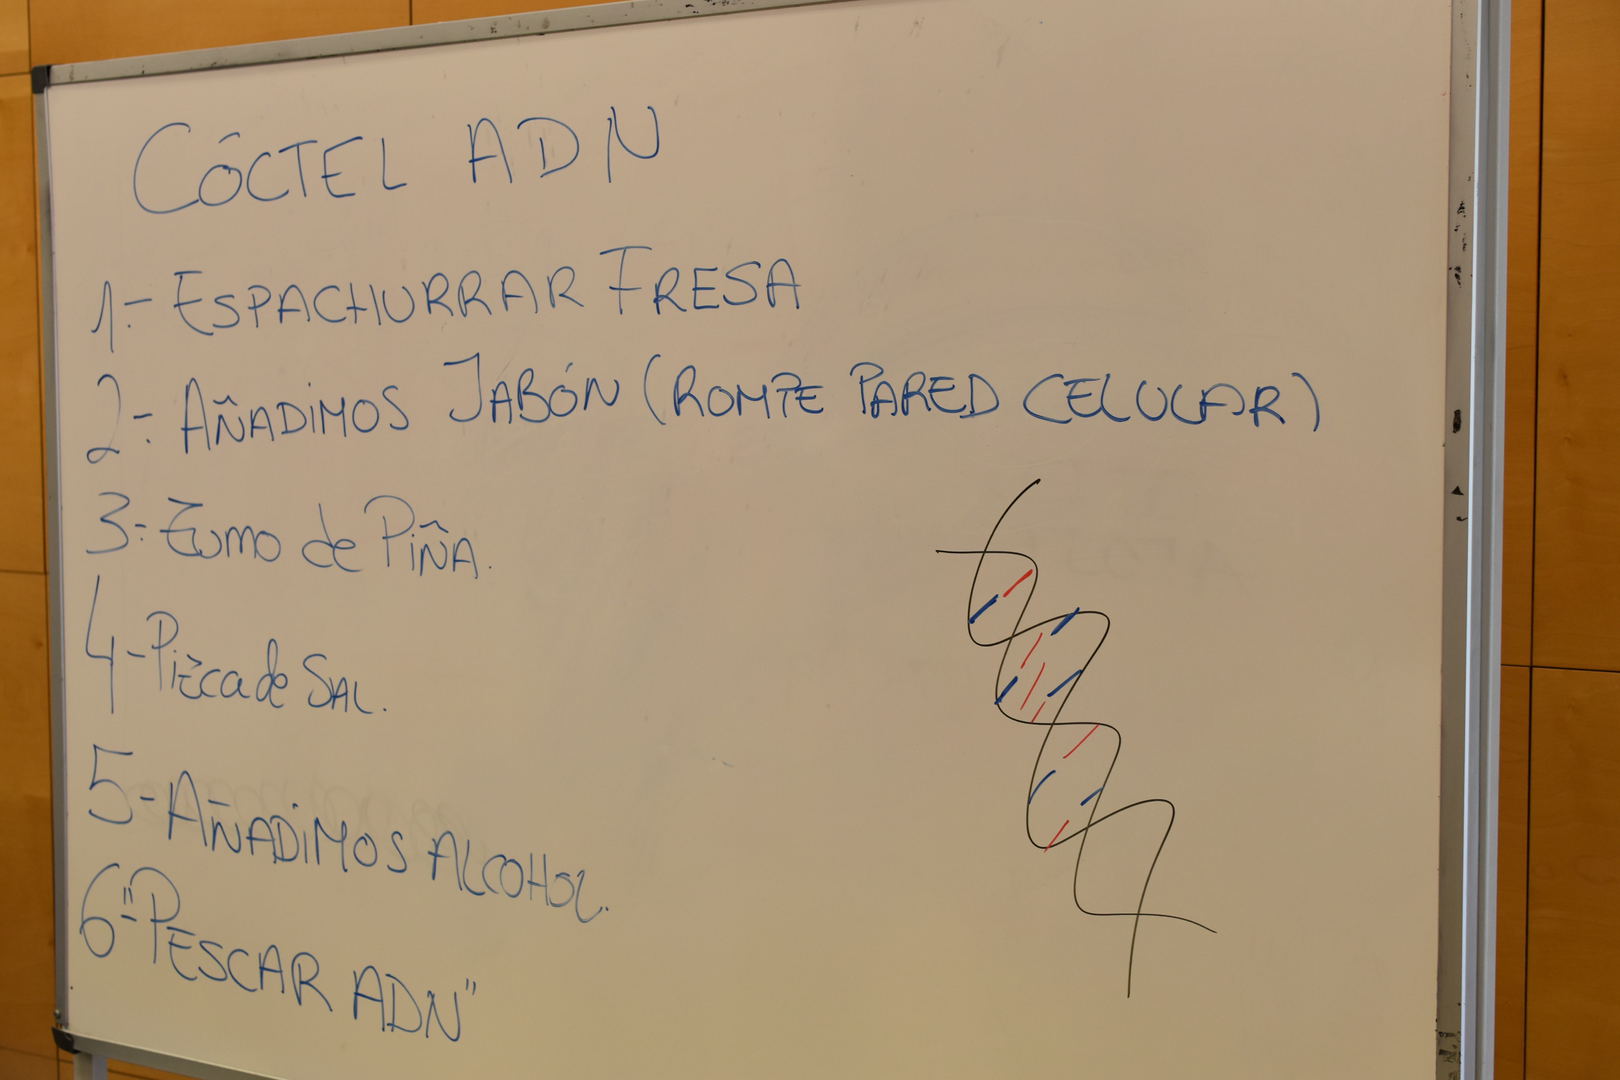 CÓCTEL ADN
1.- ESPACHURRAR FRESA
2.- AÑADIMOS JABÓN (ROMPE PARED CELULAR)
3.- Zumo de PIÑA.
4- Pizca de SAL.
5- AÑADIMOS ALCOHOL.
6- "PESCAR ADN"